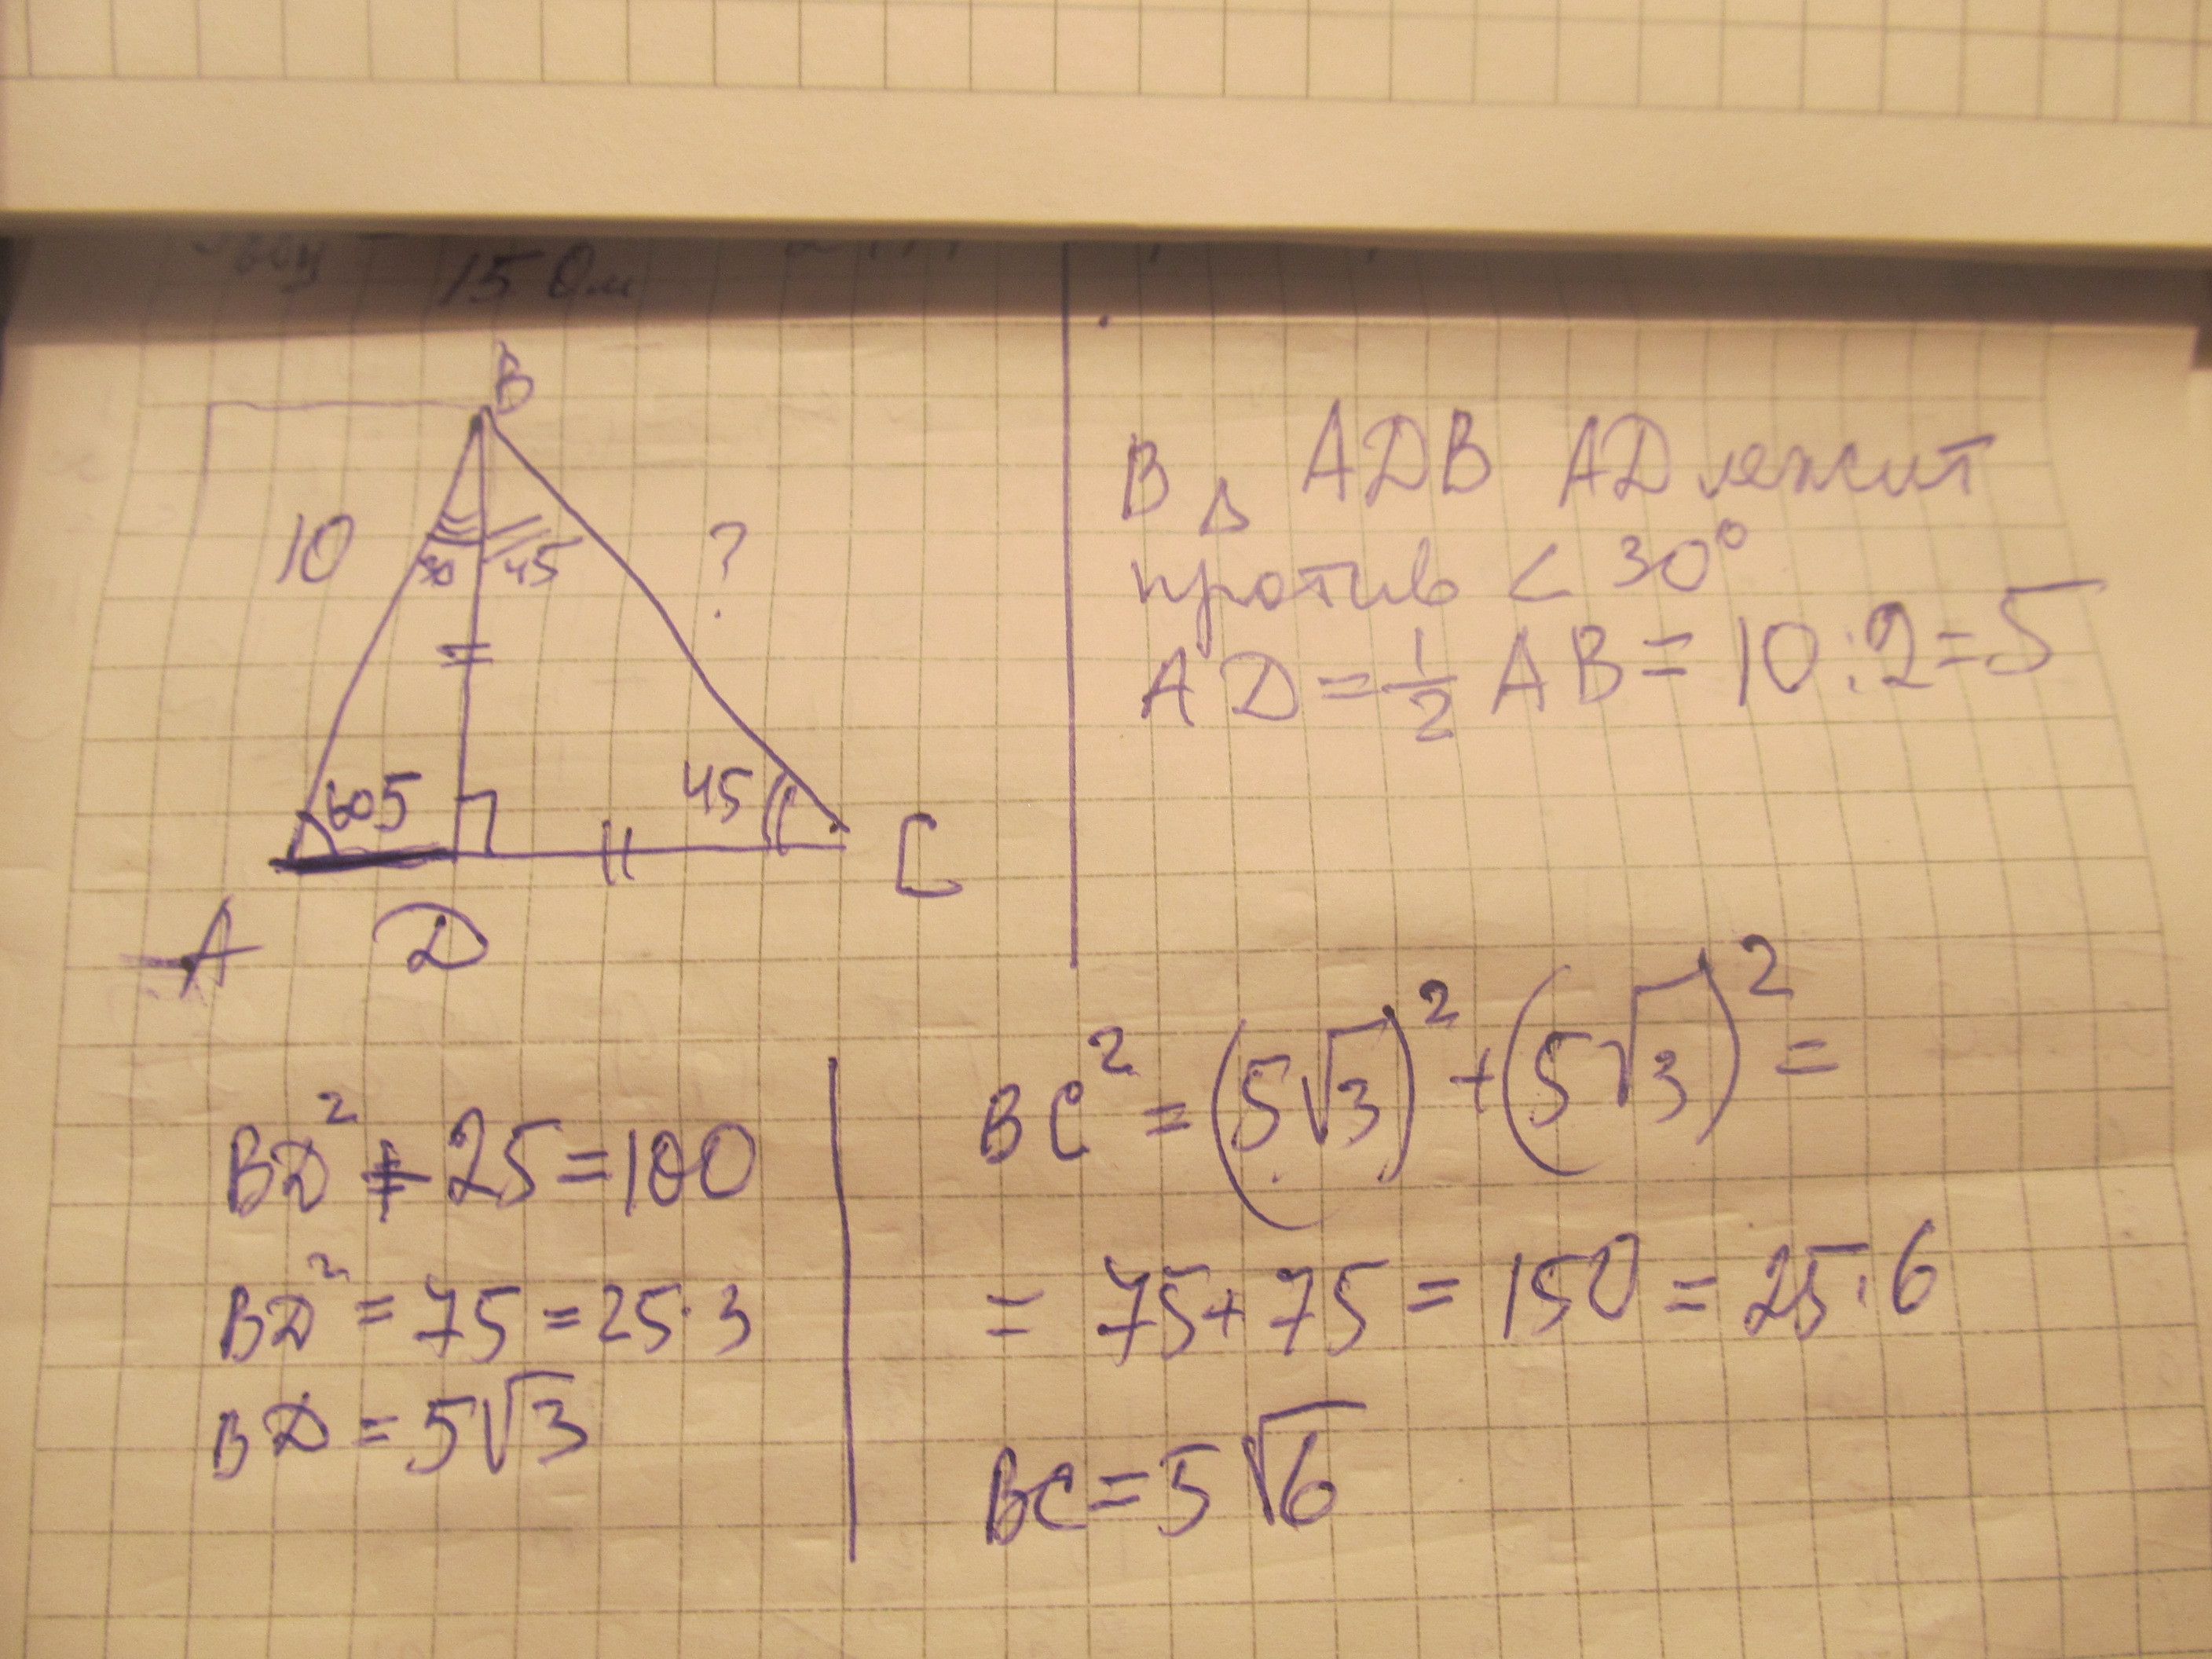 15 Ом
B
10
30 45
?
60 5
45
C
A D
В △ ADB AD лежит
против < 30°
AD = 1/2 AB = 10 : 2 = 5
BD² + 25 = 100
BD² = 75 = 25·3
BD = 5√3
BC² = (5√3)² + (5√3)² =
= 75 + 75 = 150 = 25·6
BC = 5√6